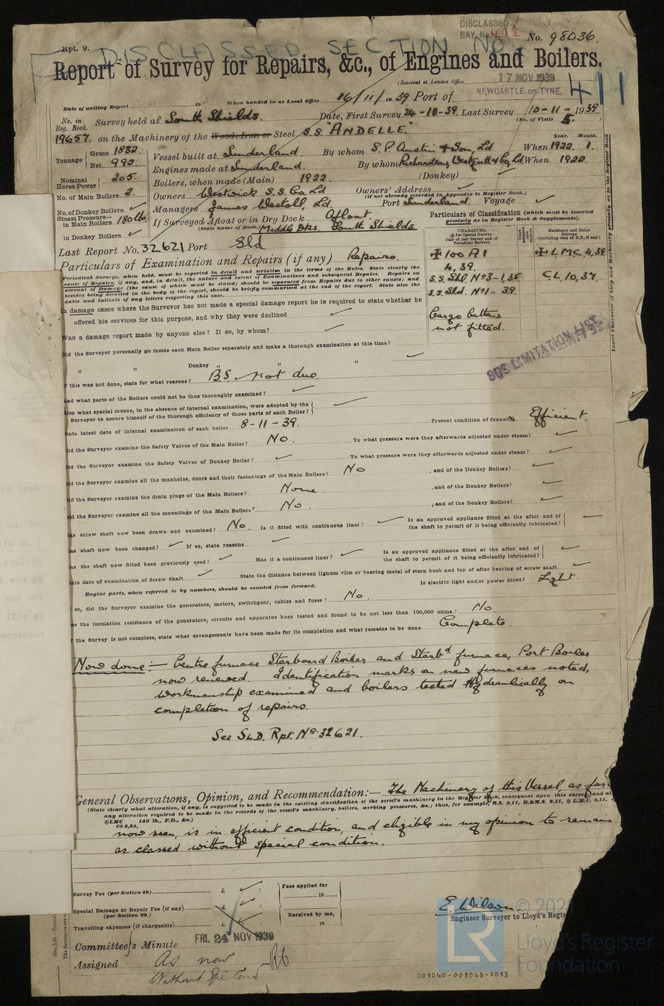 DISCLASSED
BAY No 411
No. 98036.
Rpt. 9.
DISCLASSED SECTION No 411
Report of Survey for Repairs, &c., of Engines and Boilers.
(Received at London Office
17 NOV 1939
Date of writing Report 19 When handed in at Local Office 16/11/1939 Port of NEWCASTLE-on-TYNE
No. in Reg. Book. Survey held at South Shields. Date, First Survey 24-10-39. Last Survey 10-11-1939
(No. of Visits 5.
19657 on the Machinery of the Wood, Iron or Steel S.S "ANDELLE."
Tonnage Gross 1832 Net 992
Vessel built at Sunderland By whom S.P. Austin & Son, Ld When 1922. 1.
Year. Month.
Engines made at Sunderland. By whom Richardsons Westgarth & Co Ld When 1922
Nominal Horse Power 205
Boilers, when made (Main) 1922. (Donkey)
No. of Main Boilers 2.
Owners Westwick S.S. Co Ld Owners' Address
(if not already recorded in Appendix to Register Book.)
No. of Donkey Boilers
Managers James Westoll, Ld. Port Sunderland. Voyage
Steam Pressure in Main Boilers 180 lbs
If Surveyed Afloat or in Dry Dock Afloat.
(State name of Dock.) Middle Dks. South Shields
in Donkey Boilers
Last Report No. 32621 Port Sld
Particulars of Classification (which must be inserted precisely as in Register Book & Supplements).
Particulars of Examination and Repairs (if any) Repairs.
✠ 100 A1
4.39.
S.S. Sld. No 3-1.35
S.S. Sld. No 1-39.
✠ LMC 4,39.
CL 10,37.
Cargo battens not fitted.
SOS LIMITATION LIST
In damage cases where the Surveyor has not made a special damage report he is required to state whether he
offered his services for this purpose, and why they were declined
Was a damage report made by anyone else? If so, by whom?
Did the Surveyor personally go inside each Main Boiler separately and make a thorough examination at this time?
" " Donkey " " "
If this was not done, state for what reasons? B.S. not due
And what parts of the Boilers could not be thus thoroughly examined?
Also what special means, in the absence of internal examination, were adopted by the
Surveyor to assure himself of the thorough efficiency of those parts of each Boiler?
State latest date of internal examination of each boiler 8-11-39. Present condition of funnel(s) Efficient.
Did the Surveyor examine the Safety Valves of the Main Boiler? No. To what pressure were they afterwards adjusted under steam?
Did the Surveyor examine the Safety Valves of Donkey Boiler? To what pressure were they afterwards adjusted under steam?
Did the Surveyor examine all the manholes, doors and their fastenings of the Main Boilers? No , and of the Donkey Boilers?
Did the Surveyor examine the drain plugs of the Main Boilers? None. , and of the Donkey Boilers?
Did the Surveyor examine all the mountings of the Main Boilers? No , and of the Donkey Boilers?
Has screw shaft now been drawn and examined? No. Is it fitted with continuous liner? Is an approved appliance fitted at the after end of the shaft to permit of it being efficiently lubricated?
Has shaft now been changed? If so, state reasons
Has the shaft now fitted been previously used? Has it a continuous liner? Is an approved appliance fitted at the after end of the shaft to permit of it being efficiently lubricated?
State date of examination of Screw Shaft State the distance between lignum vitæ or bearing metal of stern bush and top of after bearing of screw shaft
Engine parts, when referred to by numbers, should be counted from forward. Is electric light and/or power fitted? Light.
If so, did the Surveyor examine the generators, motors, switchgear, cables and fuses? No.
Has the insulation resistance of the generators, circuits and apparatus been tested and found to be not less than 100,000 ohms? No
If the Survey is not complete, state what arrangements have been made for its completion and what remains to be done Complete.
Now done:— Centre furnace Starboard Boiler and Starbd furnace, Port Boiler
now renewed. Identification marks on new furnaces noted,
workmanship examined and boilers tested Hydraulically on
completion of repairs.
See SLD. Rpt. No. 32621.
General Observations, Opinion, and Recommendation:— The Machinery of this Vessel, as far
now seen, is in efficient condition, and eligible in my opinion to remain
as classed without Special condition.
Survey Fee (per Section 29) £
Special Damage or Repair Fee (if any) (per Section 29.) £
Travelling expenses (if chargeable) £
Fees applied for 19
Received by me, 19
E. Wilson
Engineer Surveyor to Lloyd's Regis
Committee's Minute FRI. 24 NOV 1939
Assigned As now
Without Spl Cond
LR
Lloyd's Register
Foundation
008040-008048-0083